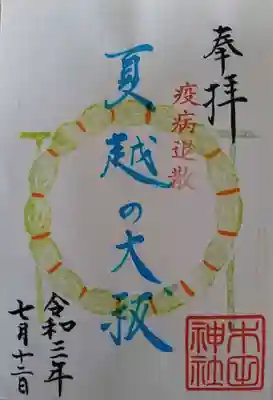 奉拝
疫病退散
夏越の大祓
令和三年
七月十二日
神社